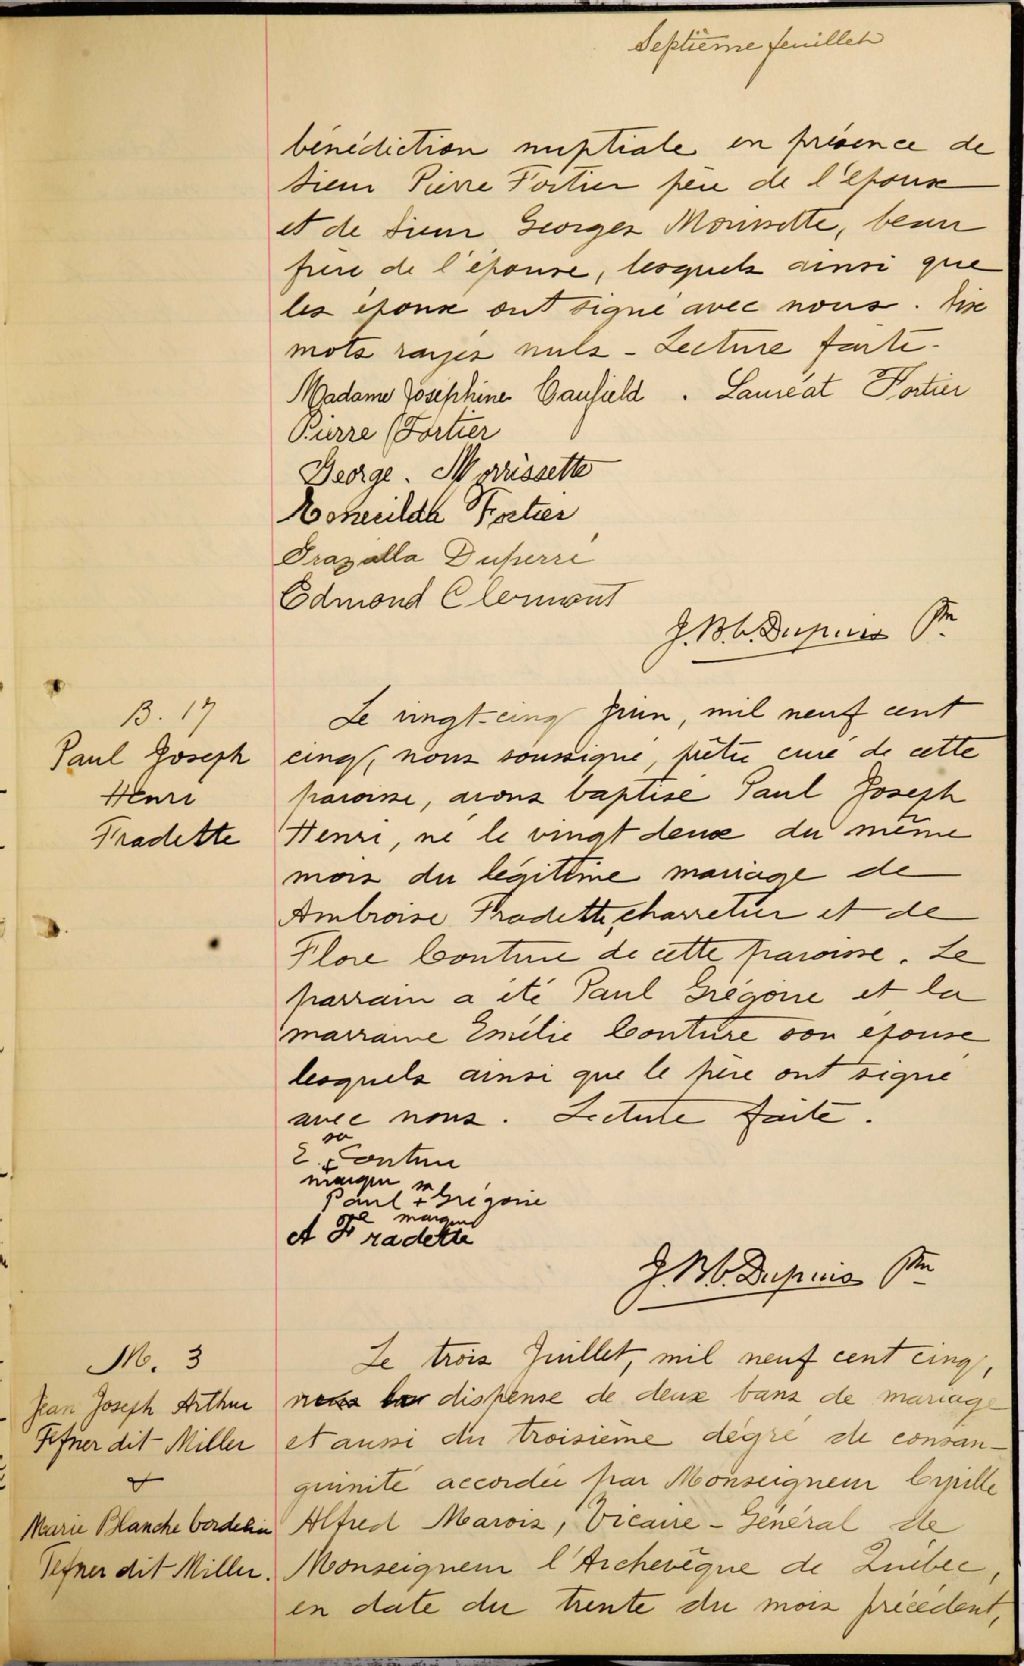 Septième feuillet
bénédiction nuptiale en présence de
Sieur Pierre Fortier père de l'époux
et de Sieur Georges Morissette, beau
frère de l'épouse, lesquels ainsi que
les époux ont signé avec nous. Six
mots rayés nuls - Lecture faite -
Madame Joséphine Caufield . Lauréat Fortier
Pierre Fortier
George. Morrissette
Fortier
Grazella Duperré
Edmond Clermont
J.B.C. Dupuis Ptre
B. 17
Paul Joseph
Henri
Fradette
Le vingt-cinq Juin, mil neuf cent
cinq, nous soussigné, prêtre curé de cette
paroisse, avons baptisé Paul Joseph
Henri, né le vingt deux du même
mois du légitime mariage de
Ambroise Fradette, charretier et de
Flore Couture de cette paroisse. Le
parrain a été Paul Grégoire et la
marraine Emélie Couture son épouse
lesquels ainsi que le père ont signé
avec nous. Lecture faite.
E. sa + Couture
marque
Paul sa + Grégoire
marque
A Fradette
J.B.C. Dupuis Ptre
M. 3
Jean Joseph Arthur
Fefner dit Miller
+
Marie Blanche Cordelia
Tefner dit Miller.
Le trois Juillet, mil neuf cent cinq,
nous la dispense de deux bans de mariage
et aussi du troisième dégré de consan-
guinité accordée par Monseigneur Cyrille
Alfred Marois, Vicaire-Général de
Monseigneur l'Archevêque de Québec,
en date du trente du mois précédent,